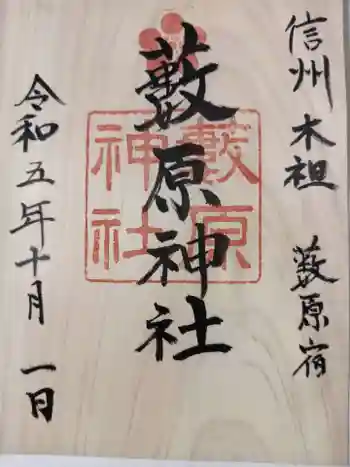 信州 木祖 薮原宿
藪原神社
藪原
神社
令和五年十月 一日